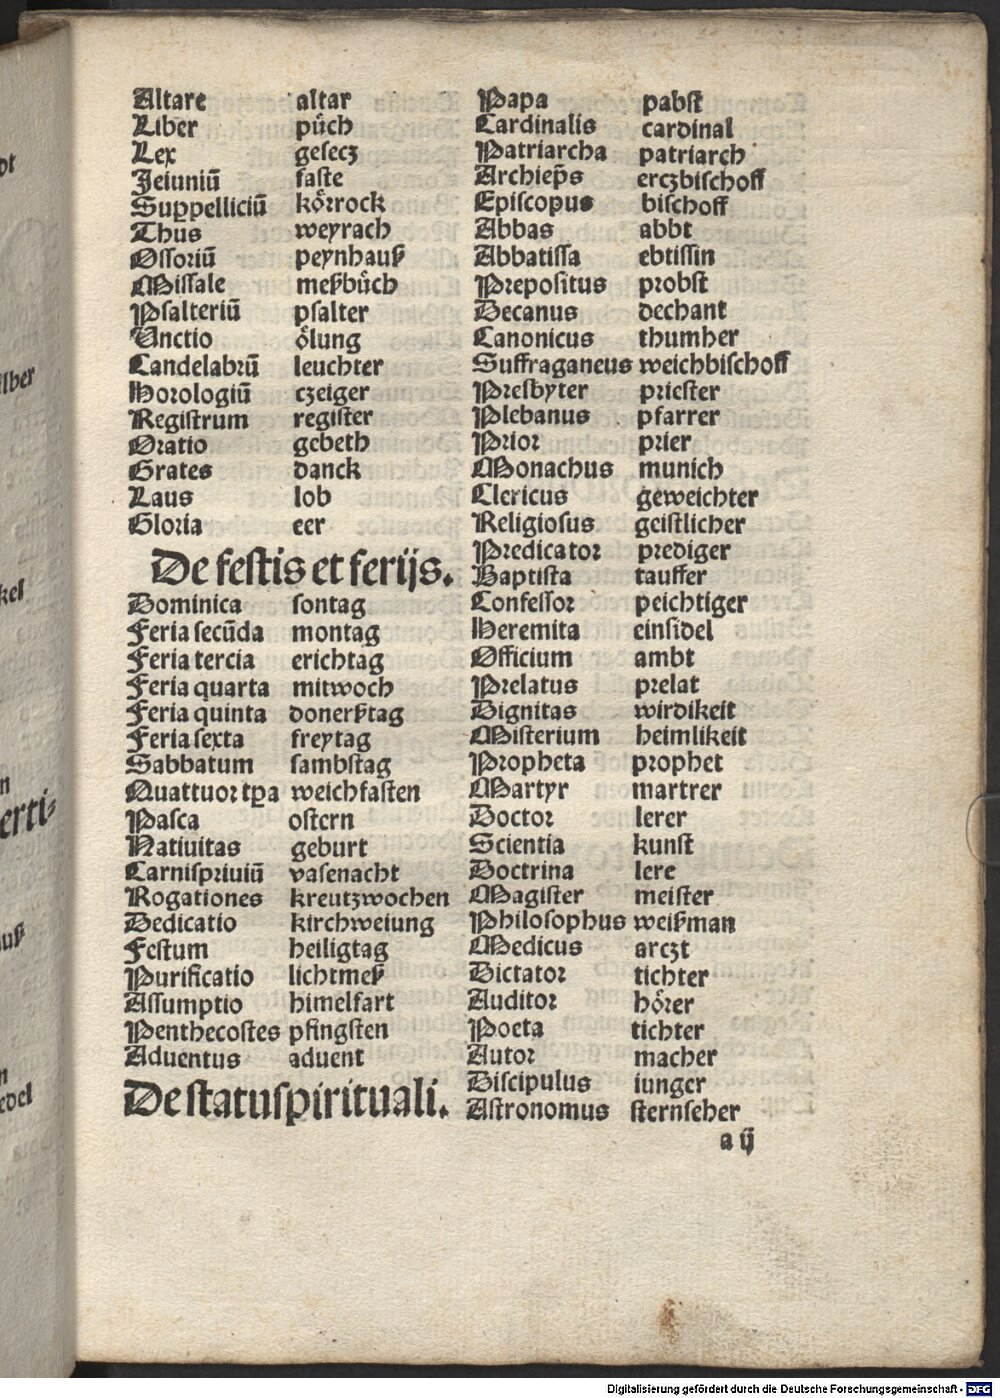 Altare altar
Liber půch
Lex gesecz
Jeiuniū faste
Suppelliciū körrock
Thus weyrach
Ossoriū peynhauß
Missale meßbůch
Psalteriū psalter
Unctio ölung
Candelabrū leuchter
Horologiū czeiger
Registrum register
Oratio gebeth
Grates danck
Laus lob
Gloria eer
De festis et ferijs.
Dominica sontag
Feria secūda montag
Feria tercia erichtag
Feria quarta mitwoch
Feria quinta donerßtag
Feria sexta freytag
Sabbatum sambstag
Quattuor tpa weichfasten
Pasca ostern
Natiuitas geburt
Carnispriuiū vasenacht
Rogationes kreutzwochen
Dedicatio kirchweiung
Festum heiligtag
Purificatio lichtmeß
Assumptio himelfart
Penthecostes pfingsten
Aduentus aduent
De statu spirituali.
Papa pabst
Cardinalis cardinal
Patriarcha patriarch
Archiep̄s erczbischoff
Episcopus bischoff
Abbas abbt
Abbatissa ebtissin
Prepositus probst
Decanus dechant
Canonicus thumher
Suffraganeus weichbischoff
Presbyter priester
Plebanus pfarrer
Prior prier
Monachus munich
Clericus geweichter
Religiosus geistlicher
Predicator prediger
Baptista tauffer
Confessor peichtiger
Heremita einsidel
Officium ambt
Prelatus prelat
Dignitas wirdikeit
Misterium heimlikeit
Propheta prophet
Martyr martrer
Doctor lerer
Scientia kunst
Doctrina lere
Magister meister
Philosophus weißman
Medicus arczt
Dictator tichter
Auditor hörer
Poeta tichter
Autor macher
Discipulus iunger
Astronomus sternseher
a ij
Digitalisierung gefördert durch die Deutsche Forschungsgemeinschaft - DFG